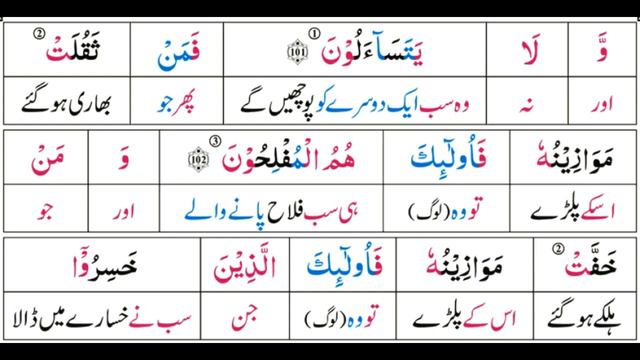 وَّ لَا يَتَسَآءَلُوْنَ ① ﴿101﴾ فَمَنْ ثَقُلَتْ ②
اور نہ وہ سب ایک دوسرے کو پوچھیں گے پھر جو بھاری ہو گئے
مَوَازِيْنُهٗ فَاُولٰٓئِكَ هُمُ الْمُفْلِحُوْنَ ③ ﴿102﴾ وَ مَنْ
اسکے پلڑے تو وہ (لوگ) ہی سب فلاح پانے والے اور جو
خَفَّتْ ② مَوَازِيْنُهٗ فَاُولٰٓئِكَ الَّذِيْنَ خَسِرُوْٓا
ہلکے ہو گئے اس کے پلڑے تو وہ (لوگ) جن سب نے خسارے میں ڈالا